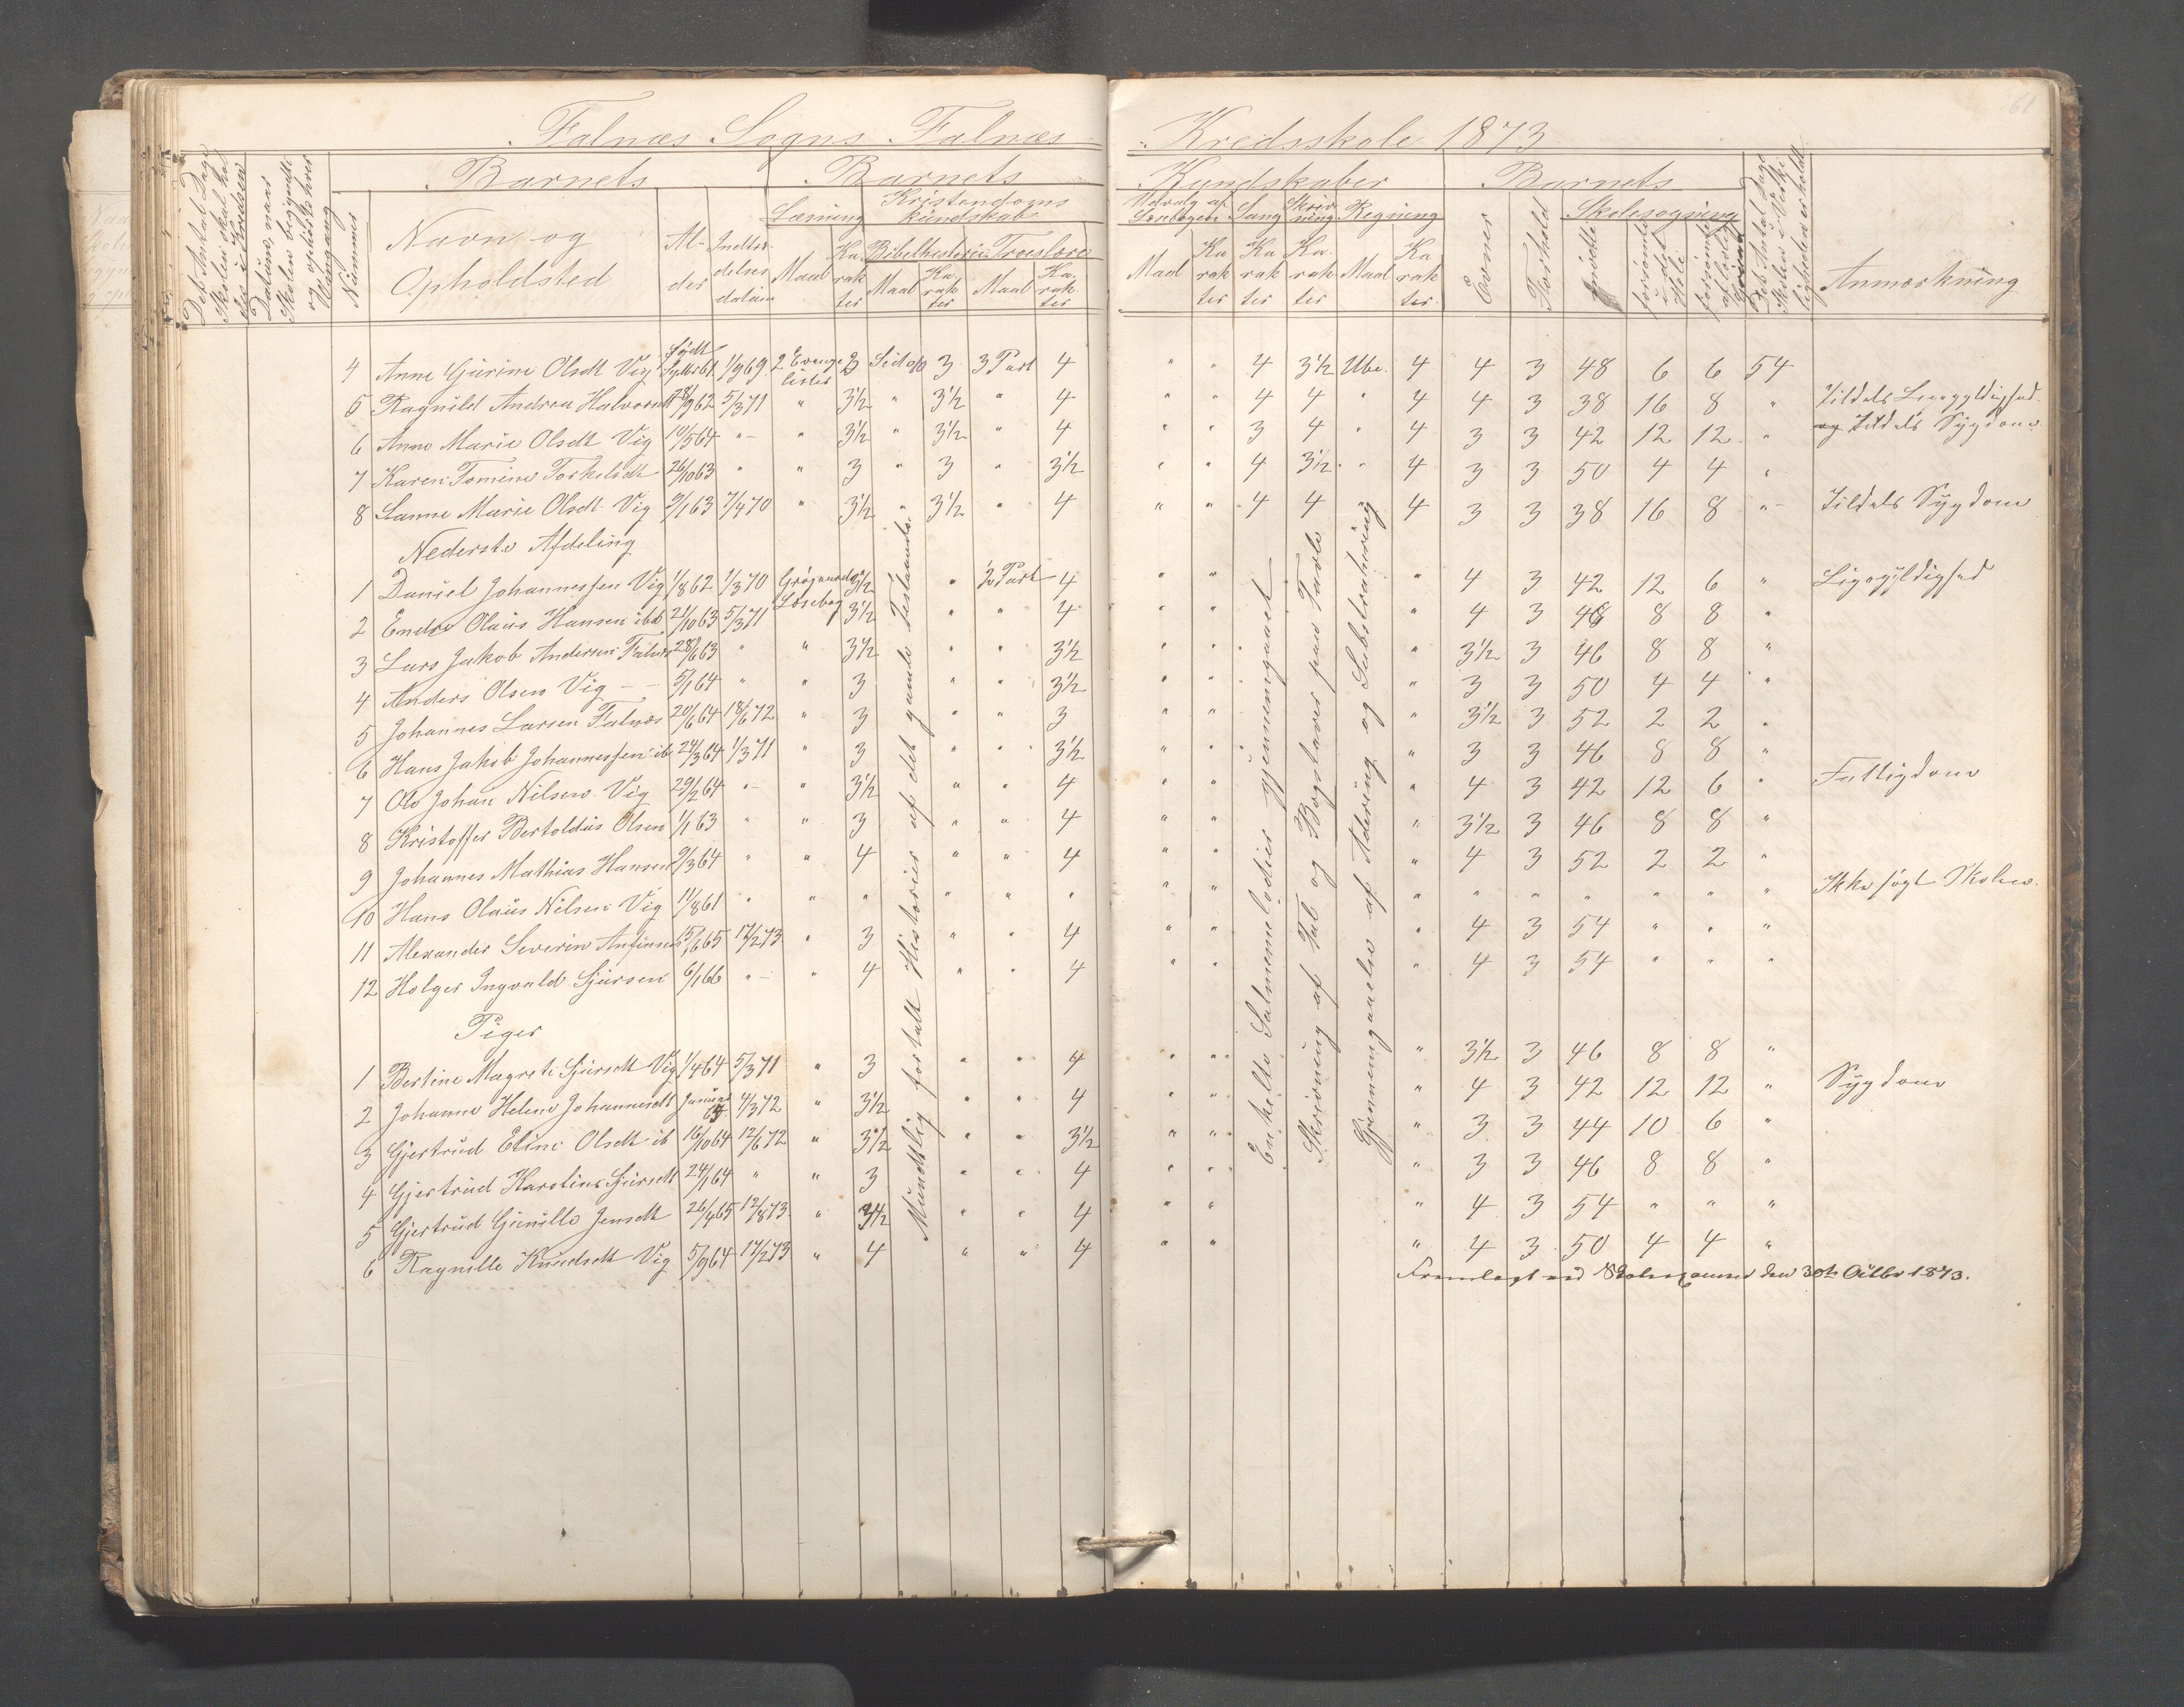 61
Falnæs Sogns Falnæs Kredsskole 1873
Det Antal Dage Skolen skal holdes i Kredsen
Datum, naar Skolen begyndte og ophørte hver Omgang
Nummer
Barnets Barnets Kundskaber Barnets
Navn og Opholdsted
Alder
Indtrædelses datum
Læsning
Maal
Karakter
Kristendoms kundskab
Bibelhistorie Troeslære
Maal Karakter Maal Karakter
Udvalg af Læsebogen Sang Skrivning Regning
Maal Karakter Karakter Karakter Maal Karakter
Evner
Forhold
Skolesøgning
forsømte i det Hele
forsømte af lovlig Grund
Det Antal Dage Skolen i Virkeligheden er holdt
Anmærkning
4 Anne Gurine Olsdt Vig Født 61 1/9 69 2 Evangelister 3 Side 3 3 Part 4 " " 4 3½ Ube. 4 4 3 48 6 6 54
5 Ragnild Andrea Halvorsdt 18/9 62 5/3 71 " 3½ " 3½ " 4 " " 4 4 " 4 4 3 38 16 8 " Tildels Ligegyldighed
6 Anne Marie Olsdt Vig 10/5 64 " " 3½ " 3½ " 4 " " 3 4 " 4 3 3 42 12 12 " og tildels Sygdom
7 Karen Tomine Torkelsdt 26/10 63 " " 3 " 3 " 3½ " " 4 3½ " 4 3 3 50 4 4 "
8 Sanne Marie Olsdt Vig 9/1 63 7/4 70 " 3½ " 3½ " 4 " " 4 4 4 3 3 38 16 8 " Tildels Sygdom
Nederste Afdeling
1 Daniel Johannessen Vig 1/8 62 1/3 70 Grøgaards Læsebog 3½ " ½ Part 4 " " " 4 3 42 12 6 " Ligegyldighed
2 Endre Olaus Hansen ibd 21/10 63 5/3 71 3½ " " 4 " " " 4 3 46 8 8 "
3 Lars Jakob Andersen Falnæs 28/6 63 " " 3½ " " 3½ " " " 3½ 3 46 8 8 "
4 Anders Olsen Vig 5/1 64 " " 3 " " 3½ " " " 3 3 50 4 4 "
5 Johannes Larsen Falnæs 20/6 64 18/6 72 " 3 " " 3 " " " 3½ 3 52 2 2 "
6 Hans Jakob Johannessen ib 24/3 64 1/3 71 " 3 " " 3½ " " " 3 3 46 8 8 "
7 Ole Johan Nilsen Vig 29/2 64 " " 3½ " " 4 " " " 4 3 42 12 6 " Fattigdom
8 Kristoffer Bertoldus Olsen 1/1 63 " " 3 " " 4 " " " 3½ 3 46 8 8 "
9 Johannes Mathias Hansen 9/3 64 " " 4 " " 4 " " " 4 3 52 2 2 "
10 Hans Olaus Nilsen Vig 11/8 61 " " " " " " " " " " " " " " " Ikke søgt Skolen.
11 Alexander Severin 15/6 65 17/2 73 " 3 " " 4 " " " 4 3 54 " " "
12 Holger Ingvald Sjursen 6/1 66 " " 4 " " 4 " " " 4 3 54 " " "
Piger
1 Bertine Magrete Sjursdt Vig 1/4 64 5/3 71 " 3 " " 4 " " " 3½ 3 46 8 8 "
2 Johanne Helene Johannesdt Januar 4/3 72 " 3½ " " 4 " " " 4 3 42 12 12 " Sygdom
3 Gjertrud Eline Olsdt ib 16/10 64 12/6 72 " 3½ " " 3½ " " " 3 3 44 10 6 "
4 Gjertrud Karoline Sjursdt 24/1 64 " " 3 " " 4 " " " 3 3 46 8 8 "
5 Gjertrud Gunille Jensdt 26/4 65 12/8 73 " 3½ " " 4 " " " 4 3 54 " " "
6 Ragnille Knudsdt Vig 5/9 64 17/2 73 " 4 " " 4 " " " 4 3 50 4 4 "
Mundtlig fortalt Historier af det gamle Testamente.
Enkelte Salmemelodier gjennemgaaet
Skrivning af Tal og Bogstaver paa Tavle
Gjennemgaaelse af Adering og Substrahering
Fremlagt ved den 30te Octbr 1873.